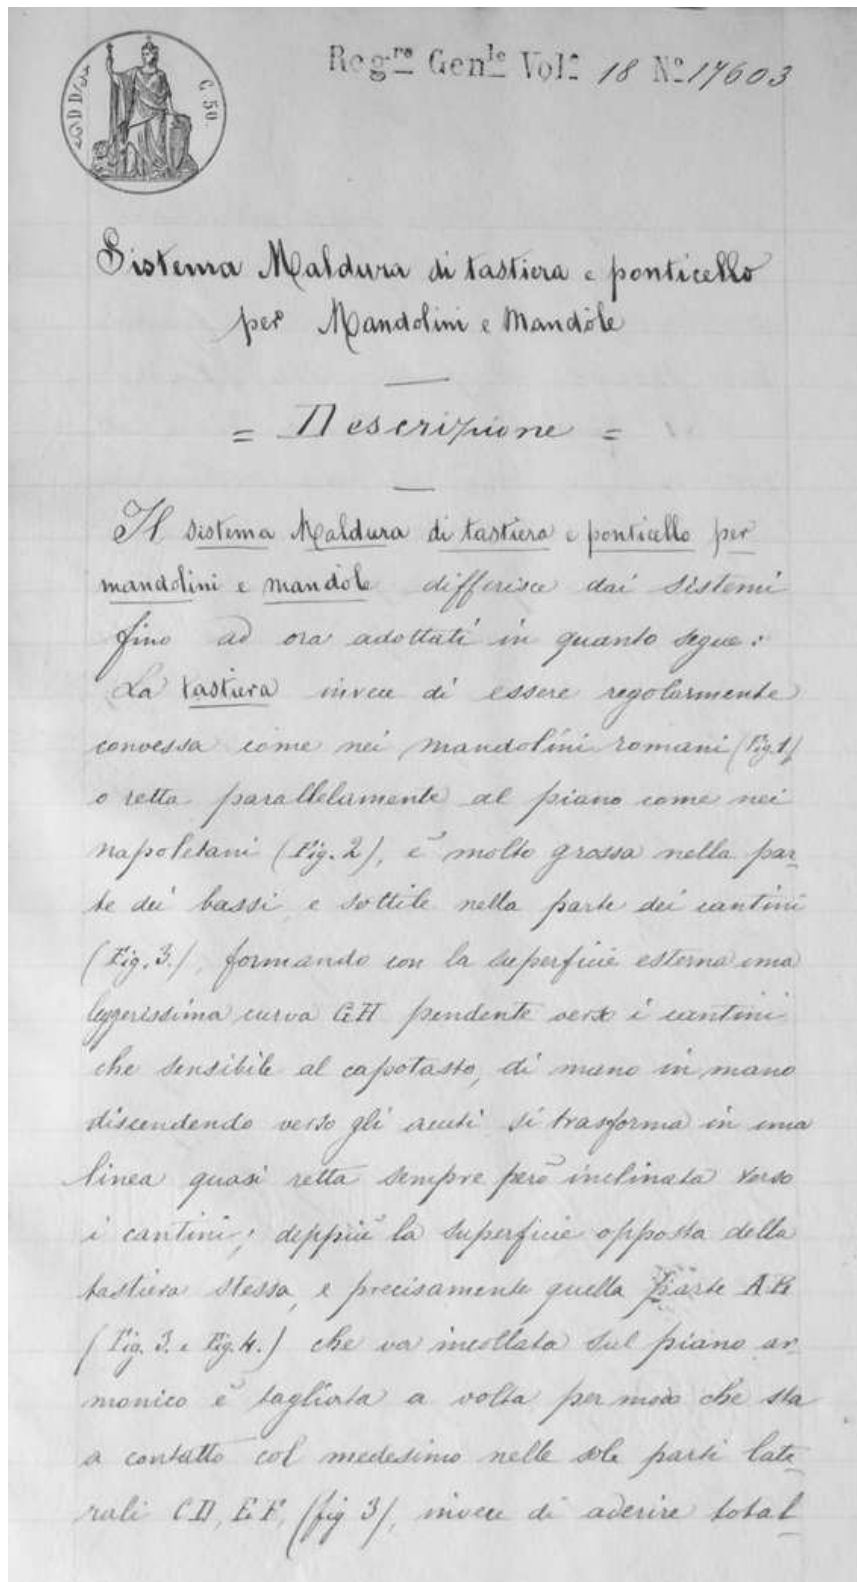 Reg.ro Gen.le Vol.o 18 No 17603
C. 50.
Sistema Maldura di tastiera e ponticello
per Mandolini e Mandòle
= Descrizione =
Il sistema Maldura di tastiera e ponticello per
mandolini e mandòle differisce dai sistemi
fino ad ora adottati in quanto segue:
La tastiera invece di essere regolarmente
convessa come nei mandolini romani (Fig. 1)
o retta parallelamente al piano come nei
napoletani (Fig. 2), è molto grossa nella par-
te dei bassi e sottile nella parte dei cantini
(Fig. 3.), formando con la superficie esterna una
leggerissima curva G.H pendente verso i cantini
che sensibile al capotasto, di mano in mano
discendendo verso gli acuti si trasforma in una
linea quasi retta sempre però inclinata verso
i cantini; deppiù la superficie opposta della
tastiera stessa, e precisamente quella parte A B
(Fig. 3. e Fig. 4.) che va incollata sul piano ar-
monico è tagliata a volta per modo che sta
a contatto col medesimo nelle sole parti late-
rali C D, E F, (fig 3), invece di aderire total-